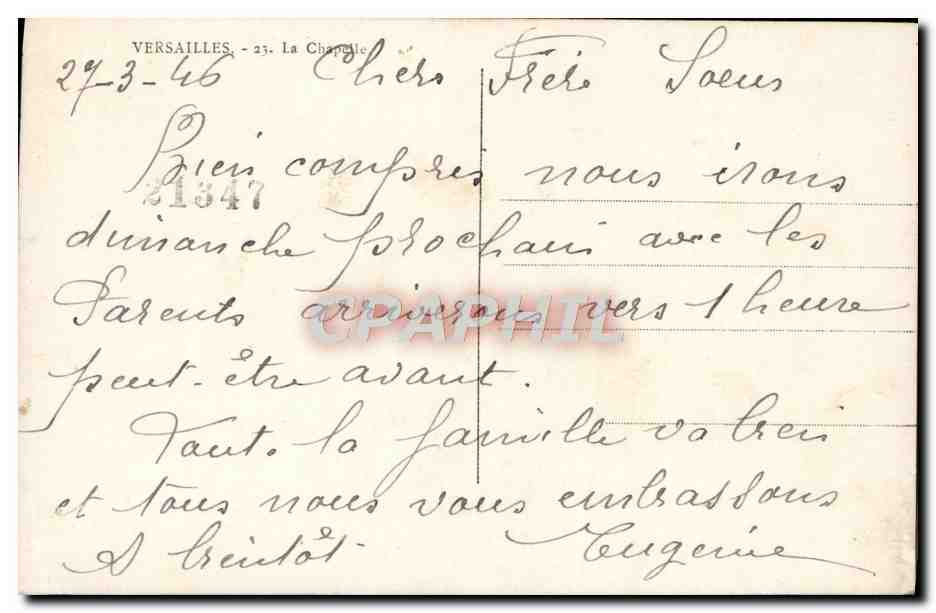 VERSAILLES. - 23. La Chapelle
27-3-46 Chers Frère Soeur
Bien compris nous irons
21347
dimanche prochain avec les
Parents arriverons vers 1 heure
CPAPHIL
peut-être avant.
Tout. la famille va bien
et tous nous vous embrassons
A bientôt Eugenie